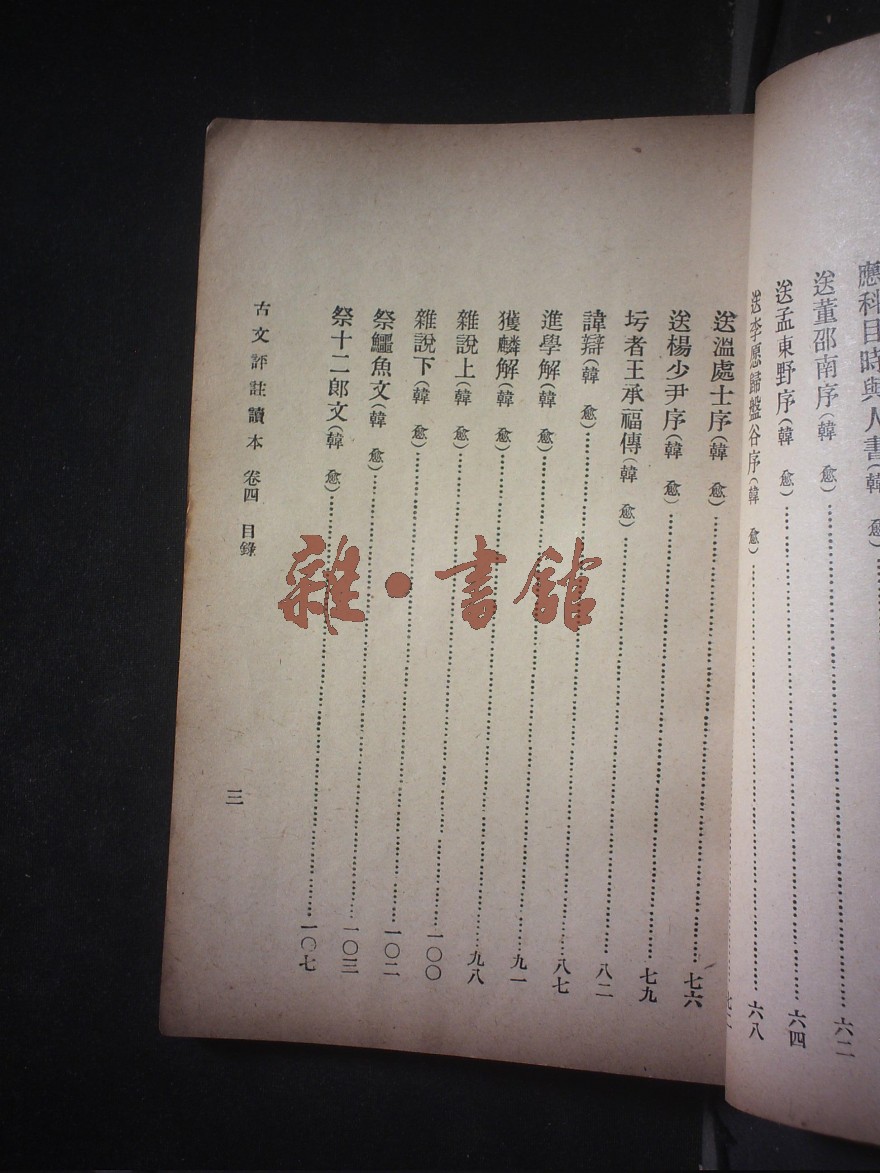 應科目時與人書(韓 愈)
送董邵南序(韓 愈)……六二
送孟東野序(韓 愈)……六四
送李愿歸盤谷序(韓 愈)……六八
送溫處士序(韓 愈)……七六
送楊少尹序(韓 愈)……七九
圬者王承福傳(韓 愈)……八二
諱辯(韓 愈)……八七
進學解(韓 愈)……九一
獲麟解(韓 愈)……九八
雜說上(韓 愈)……一〇〇
雜說下(韓 愈)……一〇二
祭鱷魚文(韓 愈)……一〇三
祭十二郎文(韓 愈)……一〇七
古文評註讀本 卷四 目錄
三
雜·書館